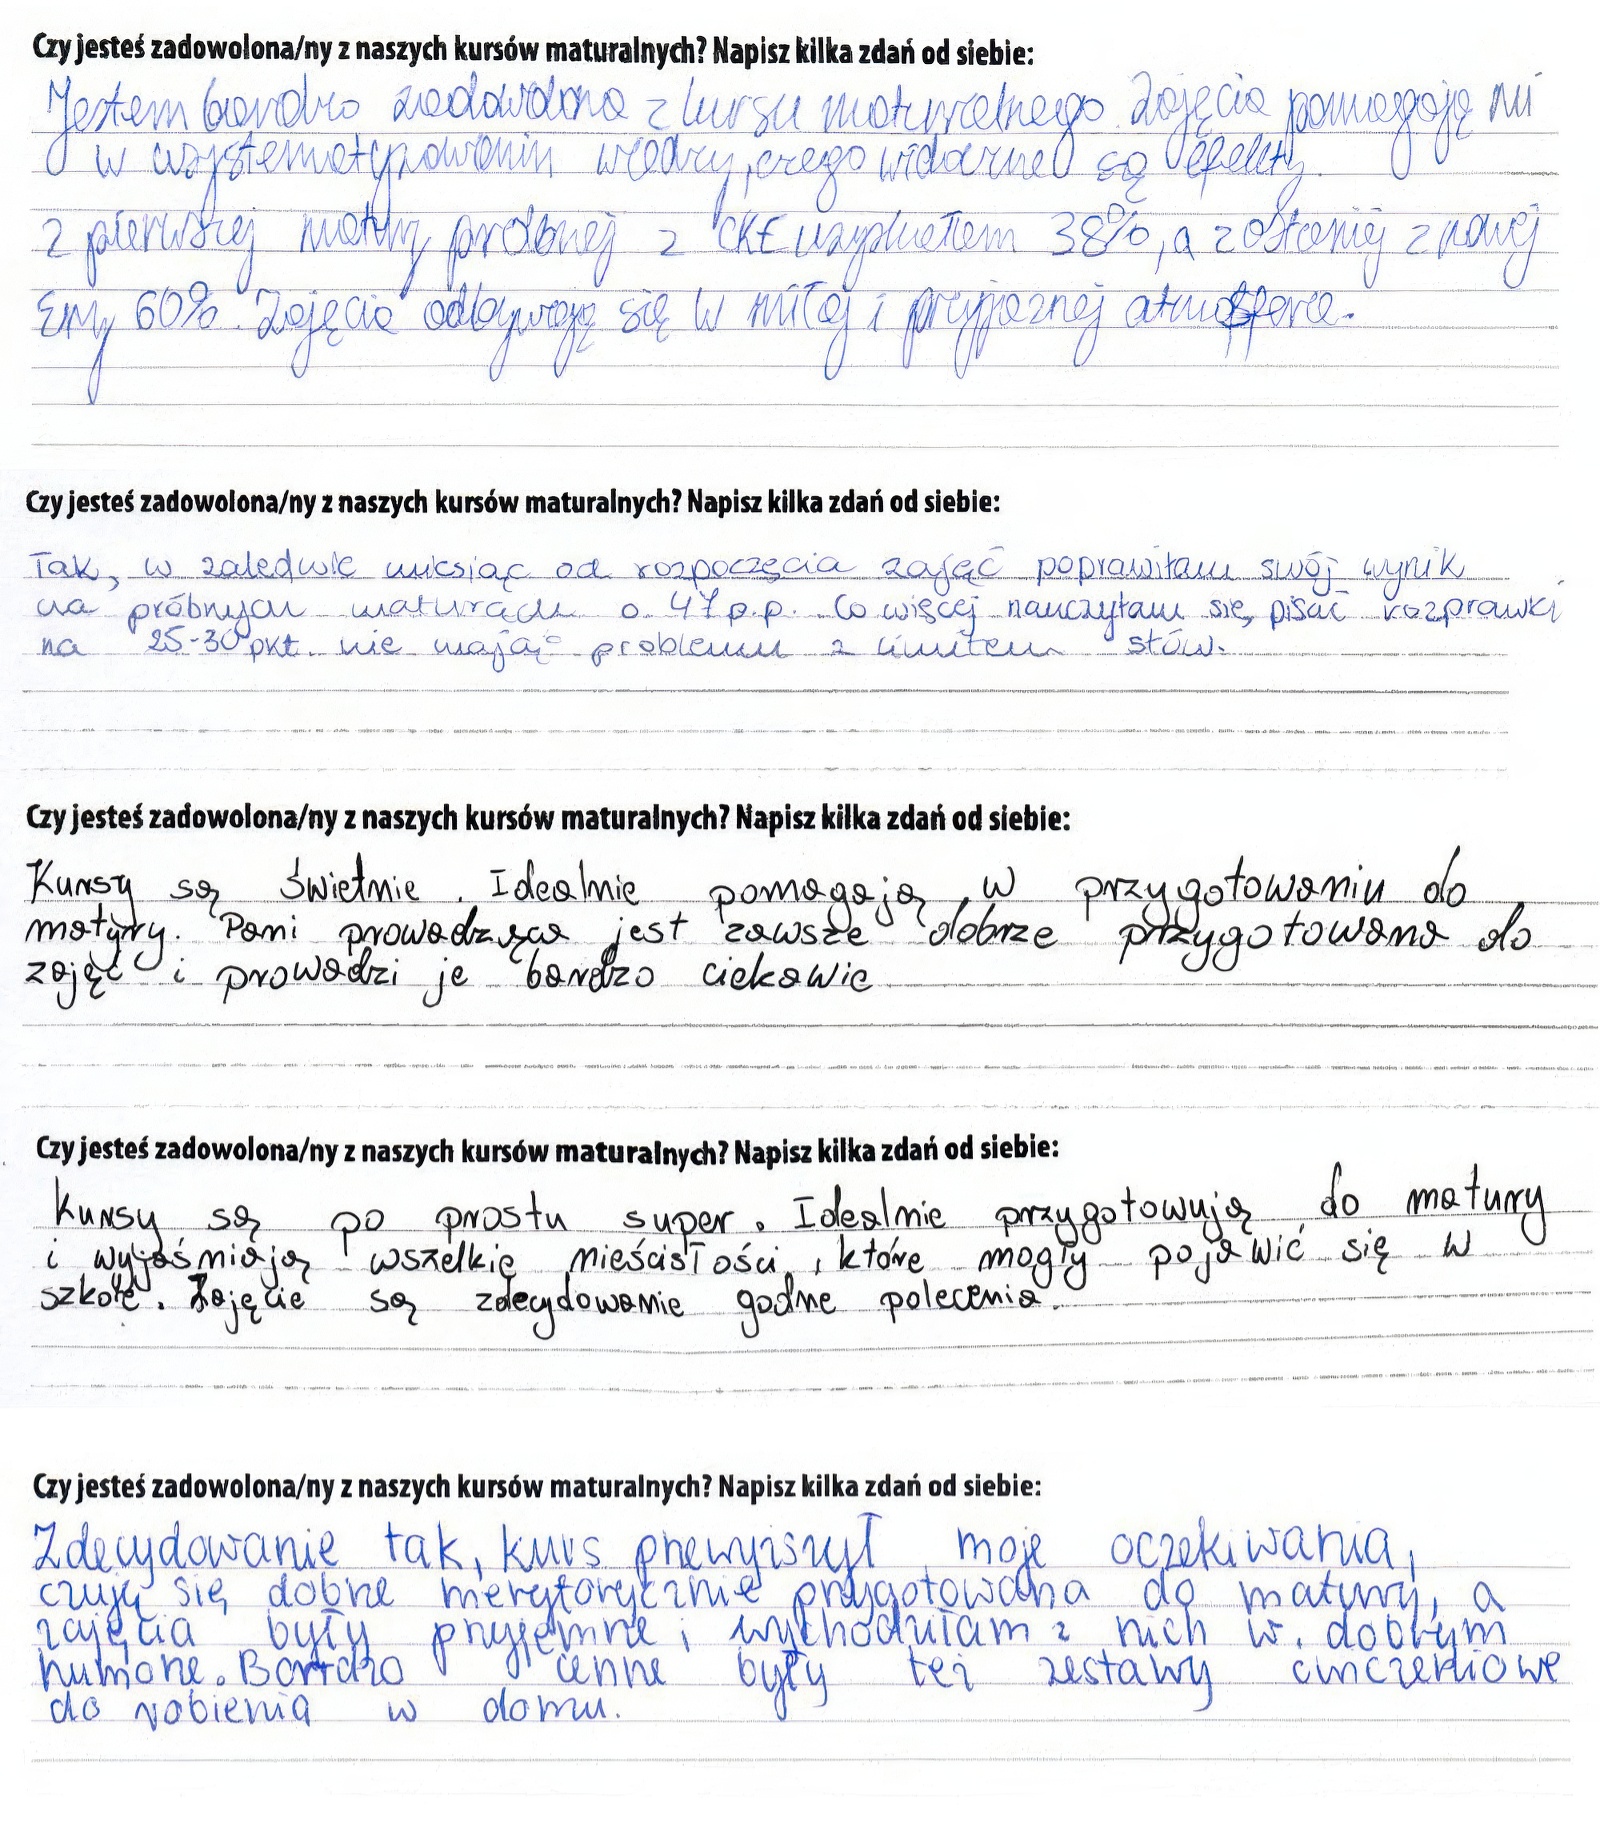 Czy jesteś zadowolona/ny z naszych kursów maturalnych? Napisz kilka zdań od siebie:
Jestem bardzo zadowolona z kursu maturalnego. Zajęcia pomagają mi
w usystematyzowaniu wiedzy, czego widoczne są efekty.
Z pierwszej matury próbnej z CKE uzyskałem 38%, a z ostatniej z nowej
Ery 60%. Zajęcia odbywają się w miłej i przyjaznej atmosferze.
Czy jesteś zadowolona/ny z naszych kursów maturalnych? Napisz kilka zdań od siebie:
Tak, w zaledwie miesiąc od rozpoczęcia zajęć poprawiłam swój wynik
na próbnych maturach o 47 p.p. Co więcej nauczyłam się pisać rozprawki
na 25-30 pkt. nie mając problemu z limitem słów.
Czy jesteś zadowolona/ny z naszych kursów maturalnych? Napisz kilka zdań od siebie:
Kursy są świetnie. Idealnie pomagają w przygotowaniu do
matury. Pani prowadząca jest zawsze dobrze przygotowana do
zajęć i prowadzi je bardzo ciekawie
Czy jesteś zadowolona/ny z naszych kursów maturalnych? Napisz kilka zdań od siebie:
Kursy są po prostu super. Idealnie przygotowują do matury
i wyjaśniają wszelkie nieścisłości, które mogły pojawić się w
szkole. Zajęcie są zdecydowanie godne polecenia.
Czy jesteś zadowolona/ny z naszych kursów maturalnych? Napisz kilka zdań od siebie:
Zdecydowanie tak, kurs przewyższył moje oczekiwania,
czuję się dobrze merytorycznie przygotowana do matury, a
zajęcia były przyjemne i wychodziłam z nich w dobrym
humorze. Bardzo cenne były też zestawy ćwiczeniowe
do robienia w domu.